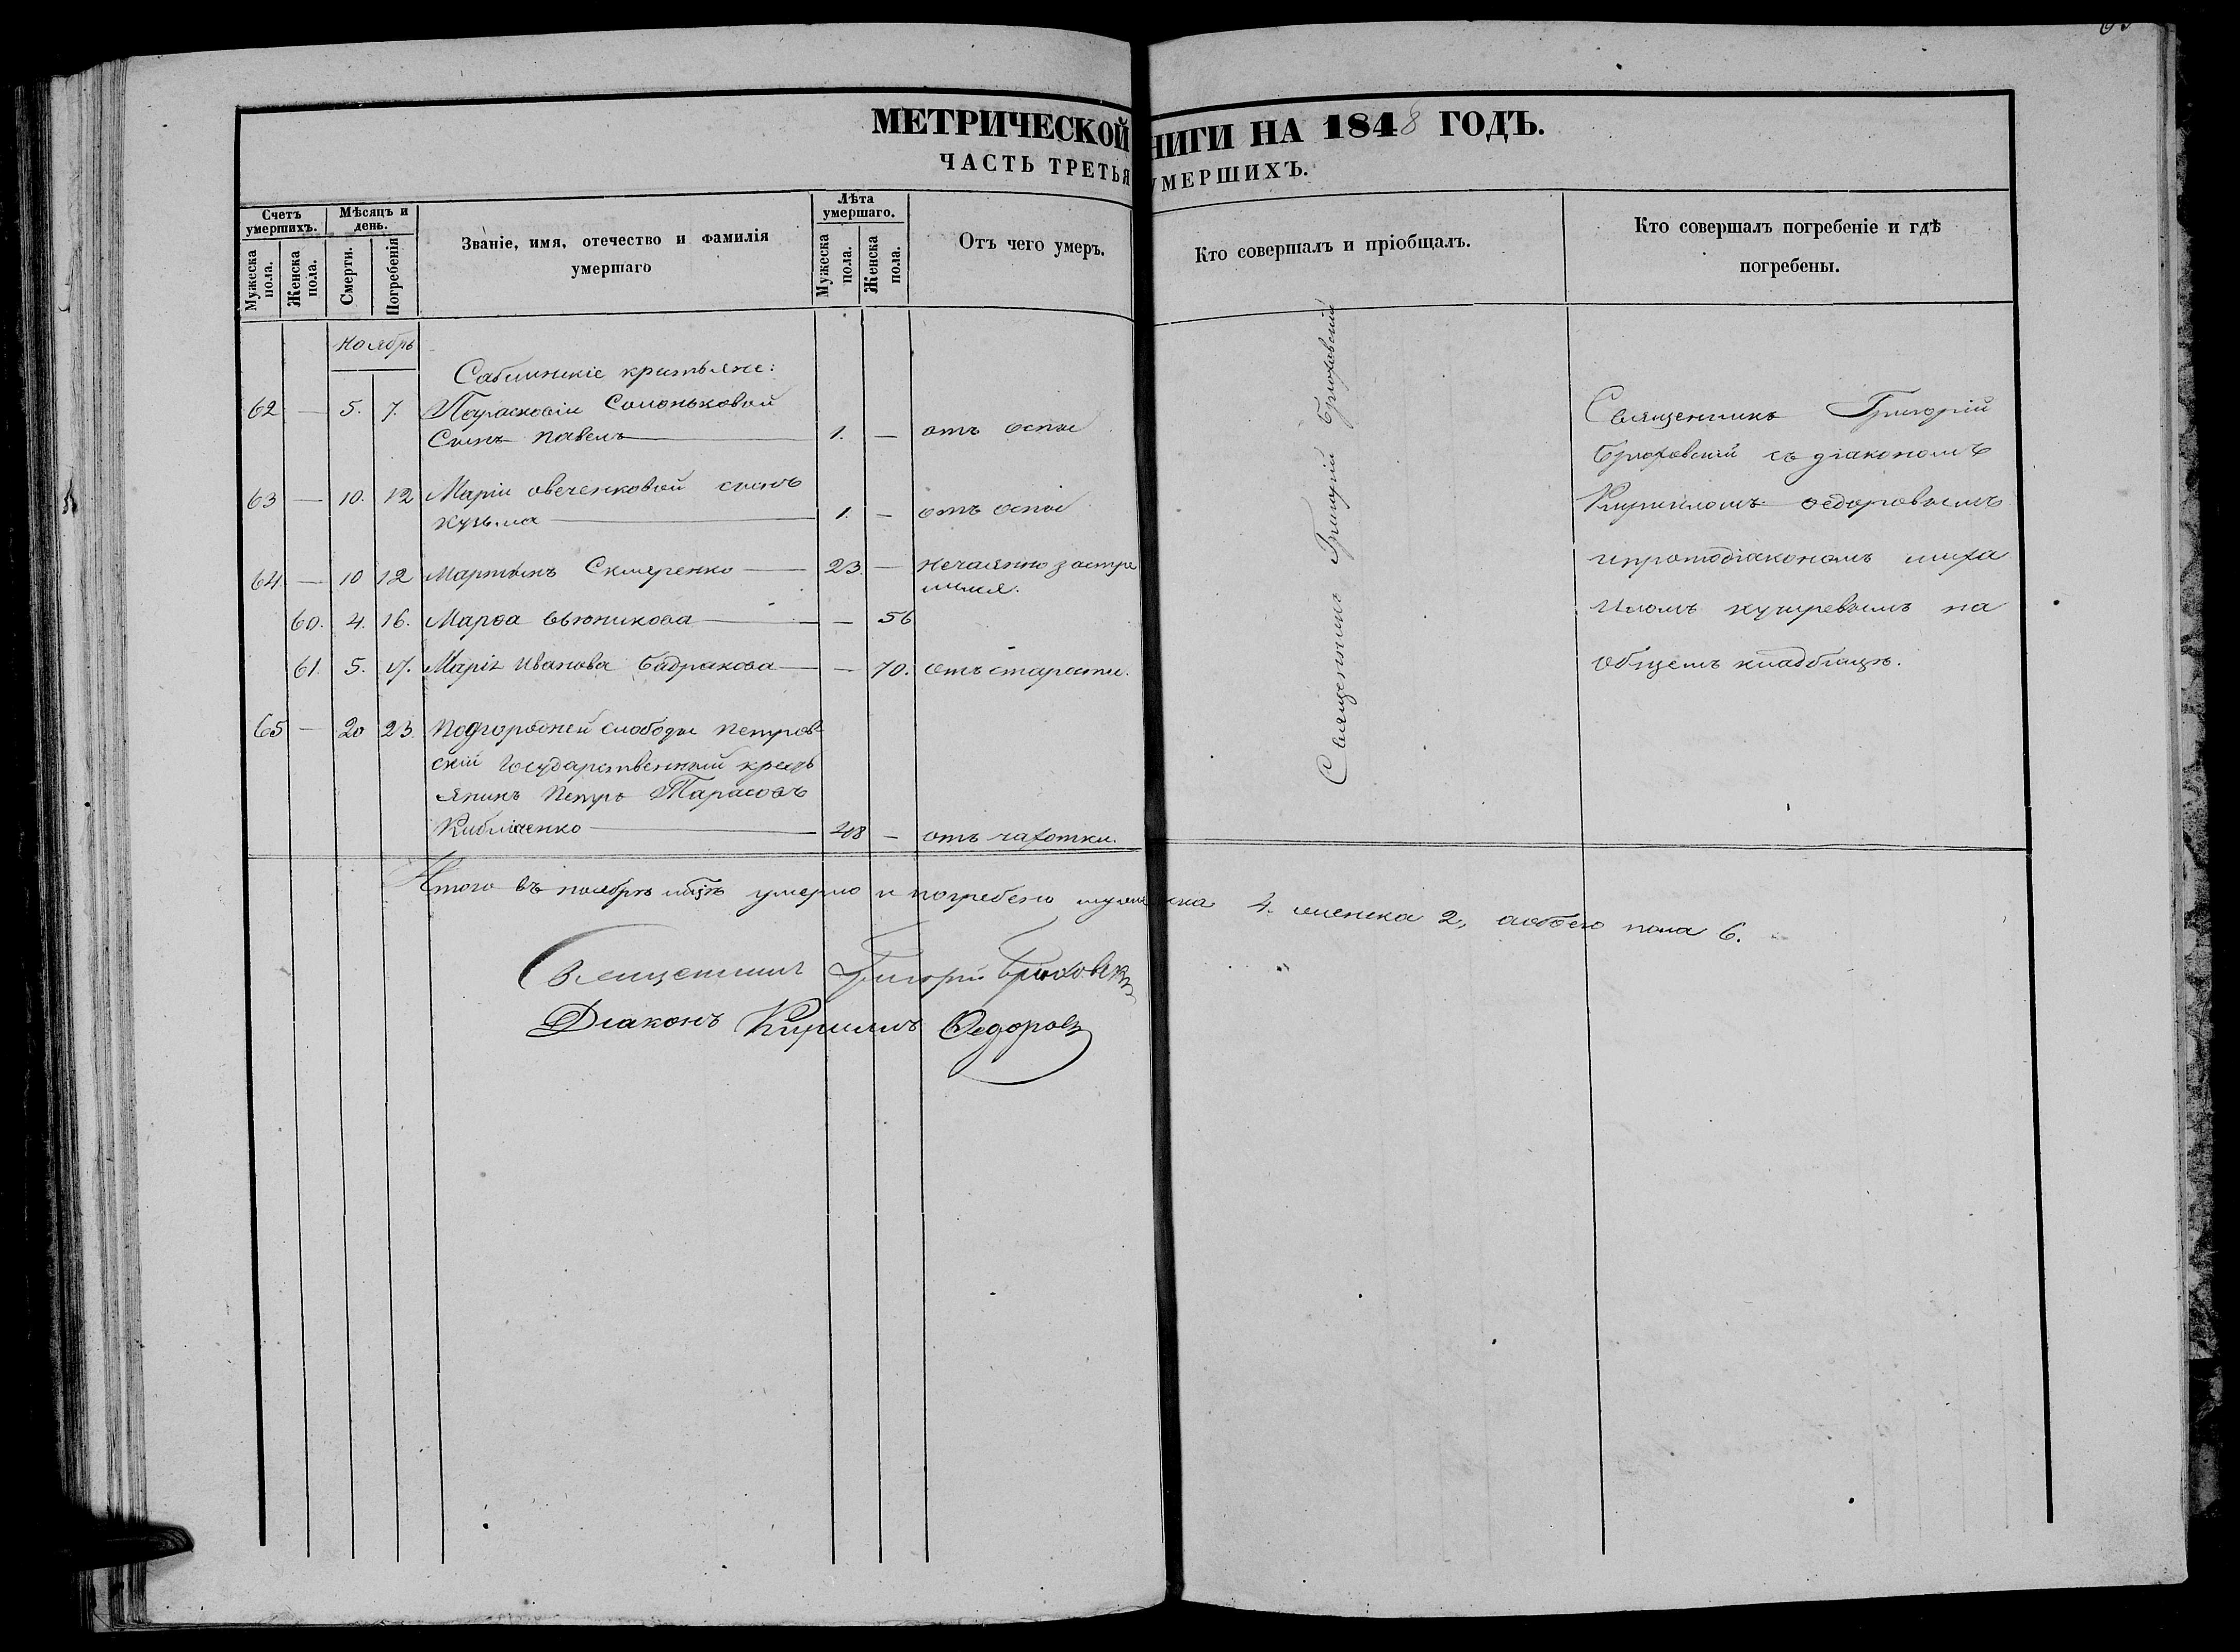 МЕТРИЧЕСКОЙ НИГИ НА 1848 ГОДЪ.
ЧАСТЬ ТРЕТЬЯ УМЕРШИХЪ.
Счетъ умершихъ.
Мужеска пола.
Женска пола.
Мѣсяцъ и день.
Смерти.
Погребенія
Званіе, имя, отечество и фамилія
умершаго
Лѣта умершаго.
Мужеска пола.
Женска пола.
Отъ чего умеръ.
Кто совершалъ и пріобщалъ.
Кто совершалъ погребеніе и гдѣ
погребены.
Ноябрь
Саблинскіе
62 — 5. 7. Парасковіи Солоньковой
Сынъ Павелъ — 1. — отъ оспы
63 — 10. 12 Маріи Овеченковой сынъ
Кузьма — 1. — отъ оспы
64. — 10 12 Мартынъ — 23. — нечаянно застре
лился.
60. 4. 16. Марѳа Вьюникова — — 56
61. 5. 17. Марія Иванова Бадракова — — 70. отъ старости.
65 — 20 23. Подгородней слободы Петров-
скій Государственный кресть
янинъ Петръ Тарасовъ
— 48 — отъ чахотки.
Священникъ Григорій Брюховскій
Священникъ Григорій
Брюховскій съ діакономъ
Кирилломъ Ѳедоровымъ
ипротодіакономъ миха
иломъ на
общемъ кладбищѣ.
Итого въ ноябрѣ мѣсяцѣ умерло и погребено мужеска 4. женска 2, аобоего пола 6.
Священникъ Григорій Брюховскій
Діаконъ Кириллъ Ѳедоровъ